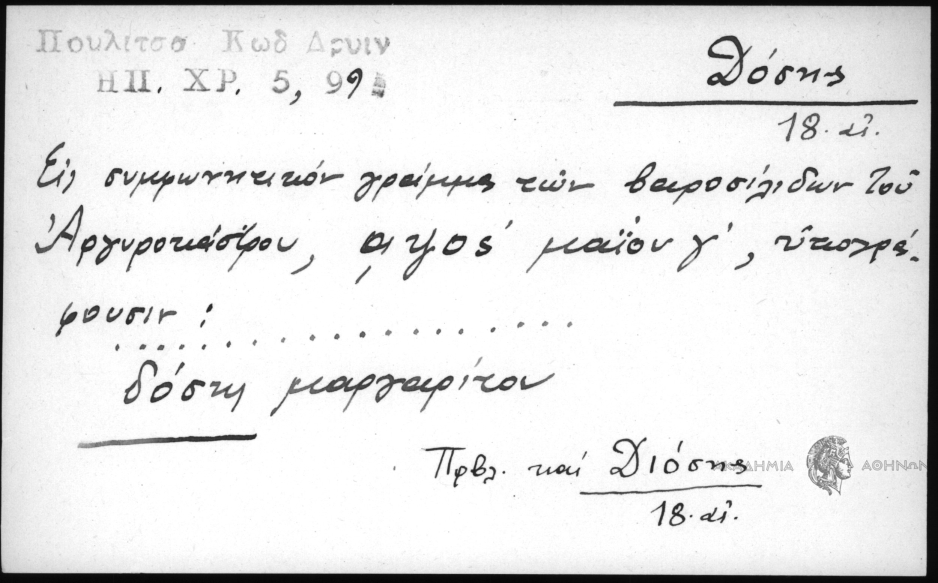 Πουλίτσα Κωδ Δρυιν
ΗΠ. ΧΡ. 5, 99
Δόσης
18. αἰ.
Εἰς συμφωνητικόν γράμμα τῶν βαροσιλίδων τοῦ
Ἀργυροκάστρου, αψος΄ μαΐου γ΄, ὑπογρά-
φουσιν :
δόση μαργαρίτου
Πρβλ. καί Διόσης
18. αἰ.
ΑΚΑΔΗΜΙΑ ΑΘΗΝΩΝ